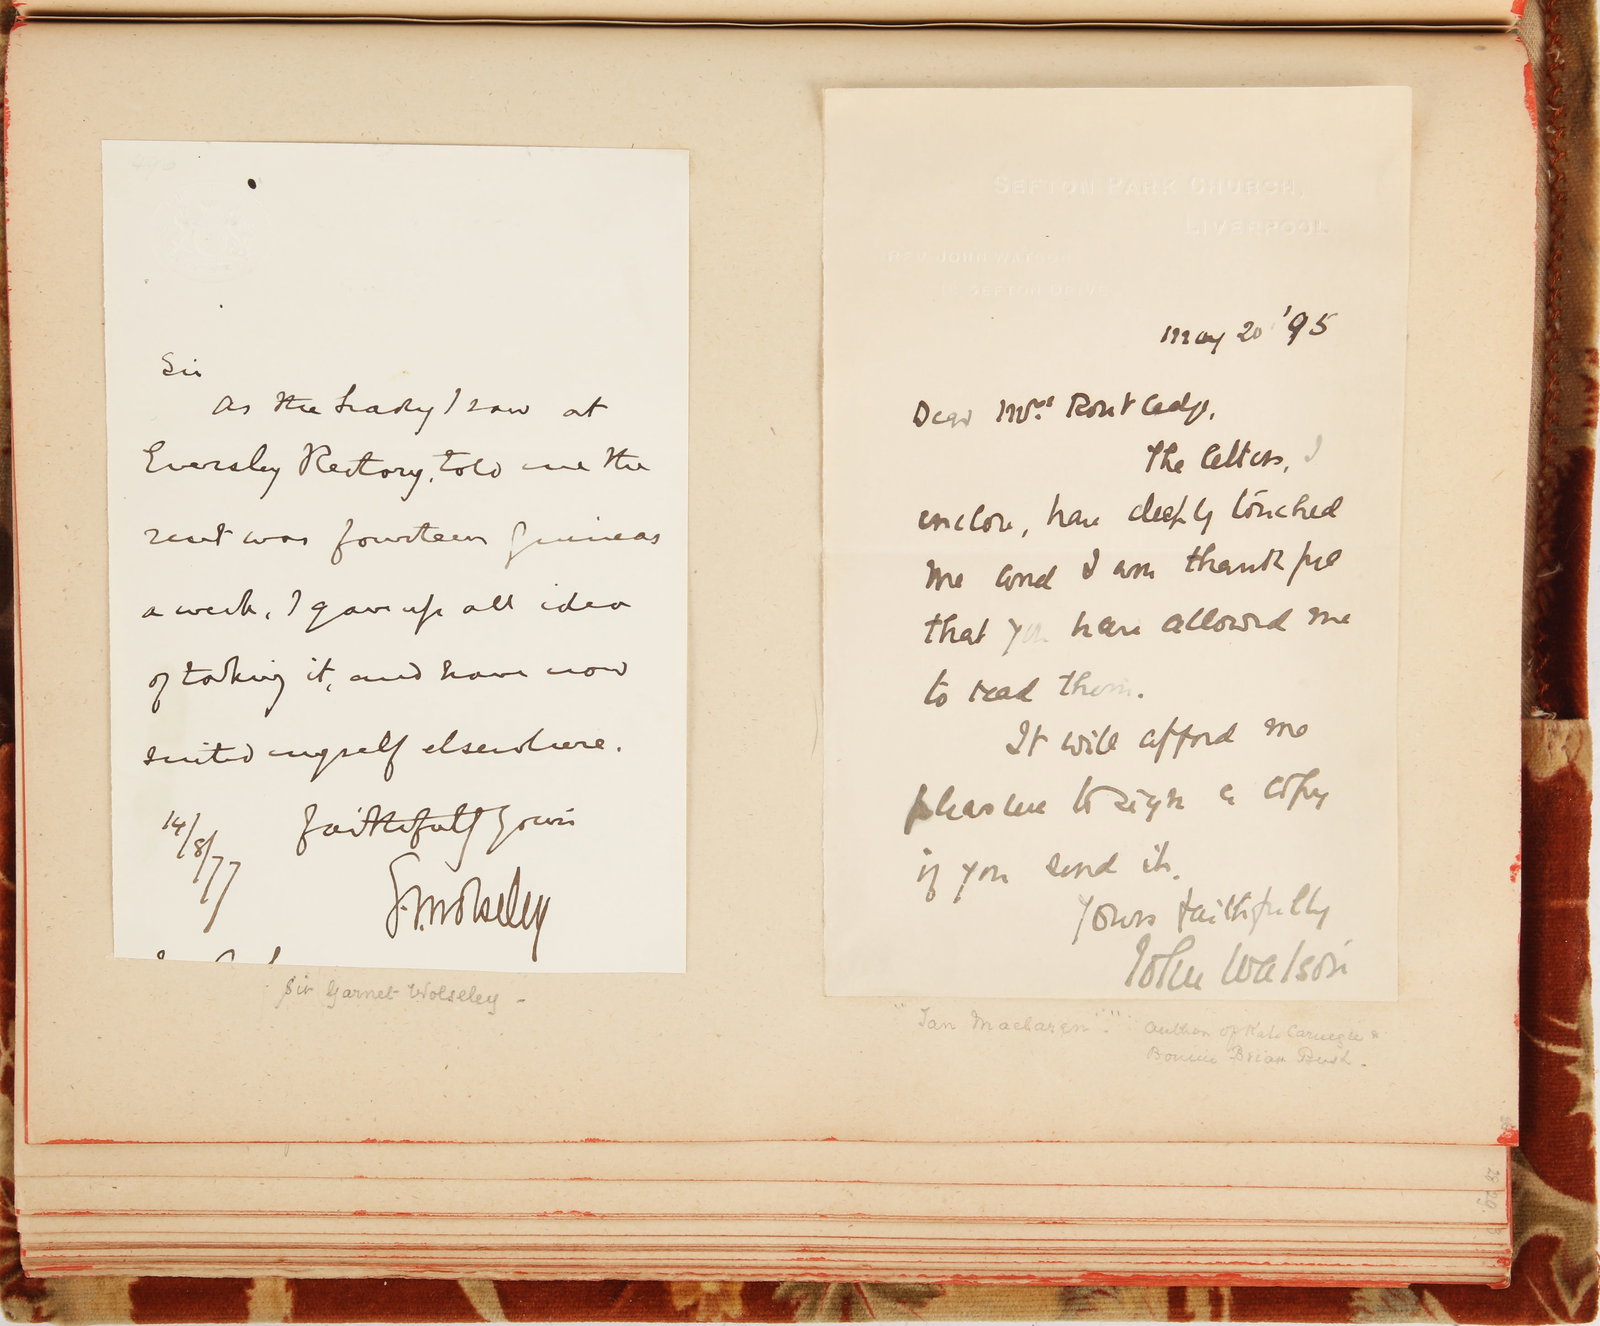 Sir
As the Lady I saw at
Eversley Rectory, told me the
rent was fourteen guineas
a week, I gave up all idea
of taking it, and have now
suited myself elsewhere.
14/8/77 Faithfully yours
G. Wolseley
Sir Garnet Wolseley -
SEFTON PARK CHURCH,
LIVERPOOL
REV. JOHN WATSON
SEFTON DRIVE
May 20 '95
Dear Mrs. Routledge,
The letters, I
enclose, have deeply touched
me and I am thankful
that you have allowed me
to read them.
It will afford me
pleasure to sign a copy
if you send it.
Yours faithfully
John Watson
"Ian Maclaren". author of Kate Carnegie &
Bonnie Briar Bush.